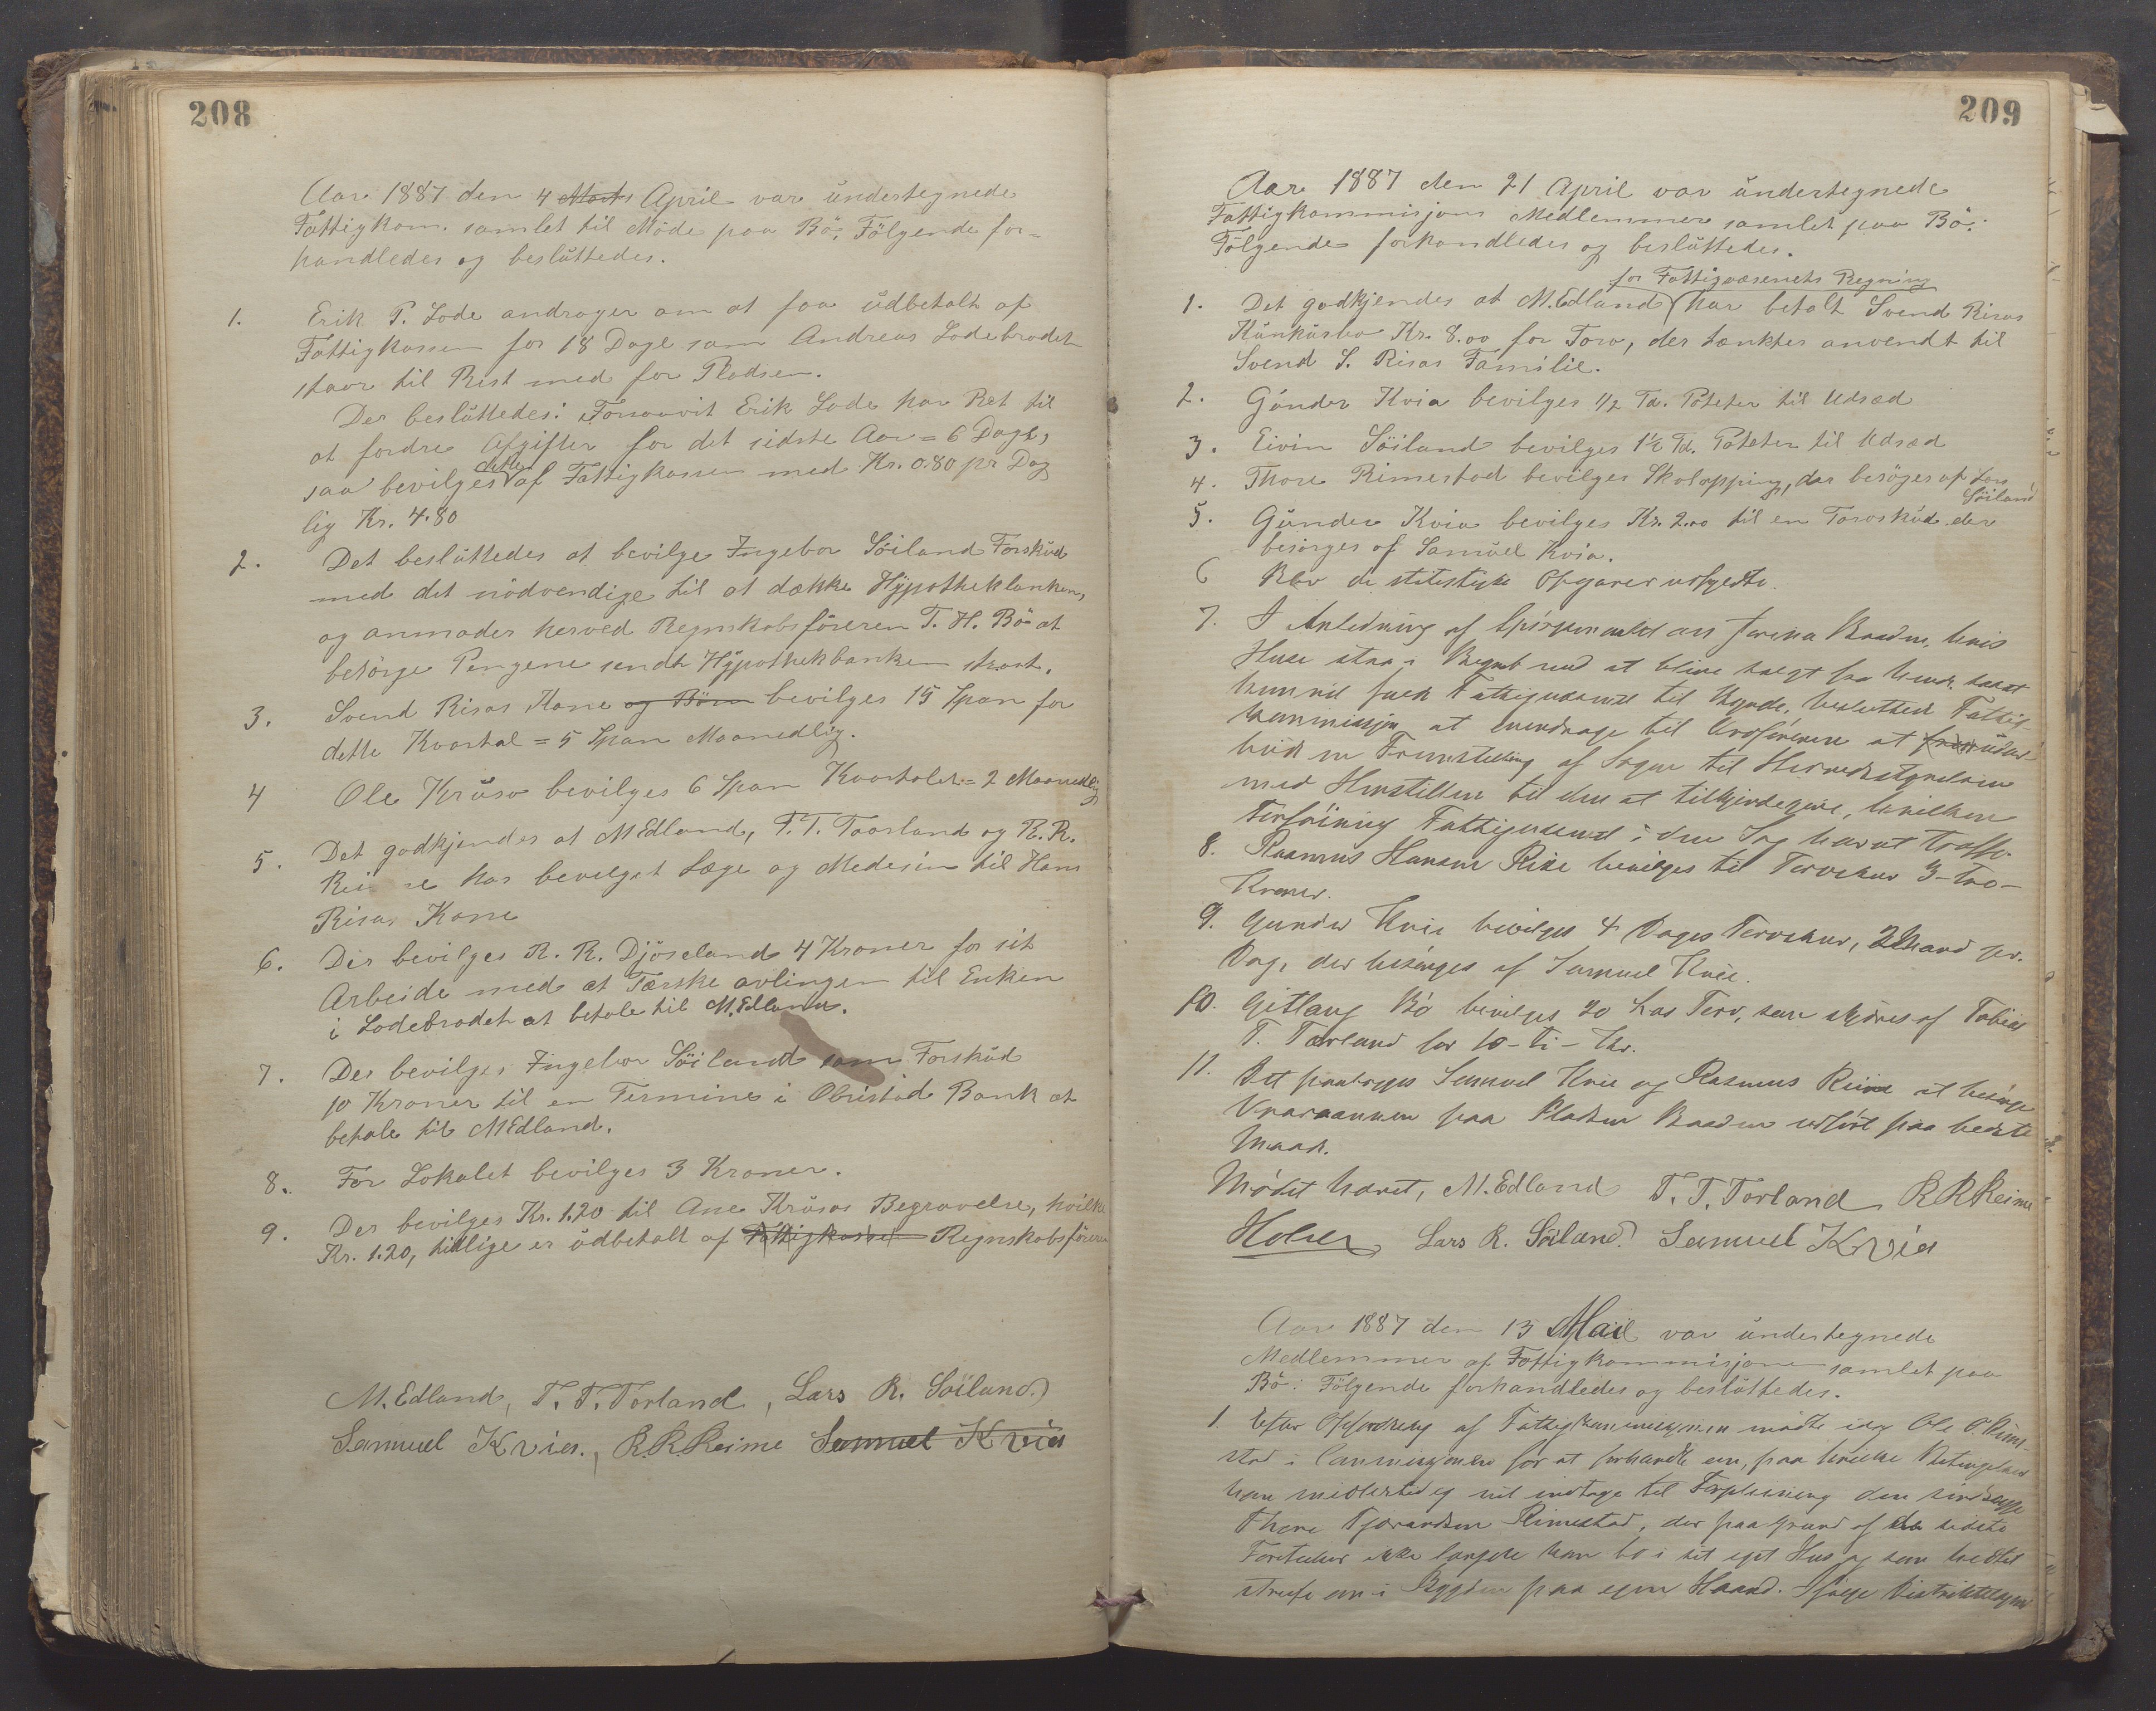 208
Aar 1887 den 4 Marts April var undertegnede
Fattigkom. samlet til Møde paa Bö. Fölgende for-
handledes og besluttedes.
1. Erik P. Lode andrager om at faa udbetalt af
Fattigkassen for 18 Dage som Andreas Lodebrodet
staar til Rest med for Pladsen.
Der besluttedes: Forsaavit Erik Lode har Ret til
at fordre Afgifter for det sidste Aar = 6 Dage,
saa bevilges dette af Fattigkassen med Kr. 0.80 pr Dag
lig Kr. 4.80
2. Det besluttedes at bevilge Ingebor Söiland Forskud
med det nödvendige til at dække Hypotheklanken,
og anmoder herved Regnskabsföreren T. H. Bö at
besörge Pengene sendt Hypothekbanken strart.
3. Svend Risas Kone og Börn bevilges 15 Span for
dette Kvartal = 5 Span Maanedlig.
4 Ole Kruso bevilges 6 Span Kvartalet = 2 Maanedlig
5. Det godkjendes at M Edland, T. T. Taarland og R. R.
Reime har bevilget Læge og Medesin til Hans
Risas Kone
6. Der bevilges R. R. Djöseland 4 Kroner for sit
Arbeide med at Tærske avlingen til Enken
i Lodebrodet at betale til M. Edland.
7. Der bevilges Ingebor Söiland som Forskud
10 Kroner til en Termine i Obristad Bank at
betale til M Edland.
8. For Lokalet bevilges 3 Kroner.
9. Der bevilges Kr. 1.20 til Ane Krusos Begravelse, hvilke
Kr. 1.20, tillige er udbetalt af Fattigkassen Regnskabsföreren
M. Edland, T. T. Torland, Lars R. Söiland.
Samuel Kvia., R. R. Reime Samuel Kvia
209
Aar 1887 den 21 April var undertegnede
Fattigkommisjons Medlemmer samlet paa Bö.
Fölgende forhandledes og besluttedes.
for Fattigvæsenets Regning
1. Det godkjendes at M. Edland har betalt Svend Risas
Kr. 8.00 for Torv, der tænktes anvendt til
Svend S. Risas Familie.
2. Gunder Kvia bevilges 1/2 Td. Poteter til Udsæd
3. Eivin Söiland bevilges 1½ Td. Poteter til Udsæd
4. Thore Rimestad bevilges Skolapping, der besörges af Lars
Söiland
5. Gunder Kvia bevilges Kr. 2.00 til en Torvskud der
besörges af Samuel Kvia.
6 Blev de statistiske Opgaver udfyldte.
7. I Anledning af Spörgsmaalet om Baaden, hvis
Huse staa i Begreb med at blive solgt fra hende, samt
Fattigvæsenet til Bygde, besluttede Fattig-
kommisjon at andrage til Ordföreren at
en Fremstilling af Sagen til Herredsstyrelsen
med Henstillen til den at tilkjendegive, hvilken
Forföining Fattigvæsenet i den Sag har at træffe.
8. Rasmus Hansen Rise bevilges til Torvskur 3-tre-
Kroner.
9. Gunder Kvia bevilges 4 Dages Torvskur, 2 Mand pr.
Dag, der besörges af Samuel Kvia.
10. Gitlaug Bö bevilges 20 Las Torv, som skjæres af Tobias
T. Tarland for 10-ti-Kr.
11. Det paalægges Samuel Kvia og Rasmus Reime at besörge
Vaaraannen paa Pladsen Baaden udfört paa bedste
Maade.
Mödet hævet, M. Edland T. T. Torland R R Reime
Holsen Lars R. Söiland. Samuel Kvia
Aar 1887 den 13 Mai var undertegnede
Medlemmer af Fattigkommisjonen samlet paa
Bö: Fölgende forhandledes og besluttedes.
1 Efter Opfordring af Fattigkommisjonen mödte idag Ole O. Rime-
stad i Commisjonen for at forhandle om, paa hvilke Betingelser
han midlertidig vil indtage til Forpleining den sindssyge
Thore Tjerandsen Rimestad, der paa Grund af den sidste
ikke længere kan bo i sit eget Hus og som
streife om i Bygden paa egen Haand. Ifølge